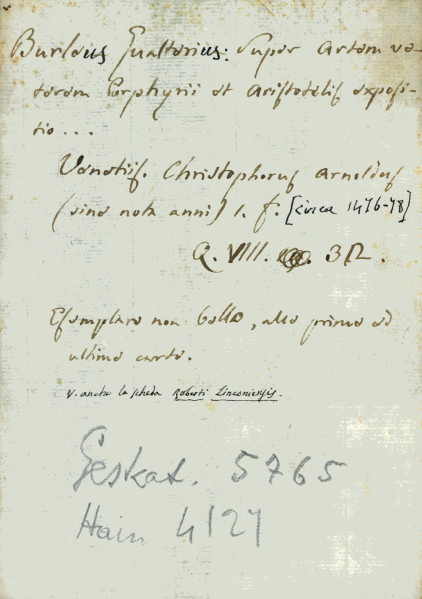 Burleus Gualterius: Super Artem ve-
terem Porphyrii et Aristotelis exposi-
tio...
Venetiis. Christophorus Arnoldus
(sine nota anni) 1. f. [circa 1476-78]
Q. VIII. 32.
Esemplare non bello, alle prime ed
ultime carte.
V. anche la scheda Roberti Linconiensis.
Geskat. 5765
Hain 4127